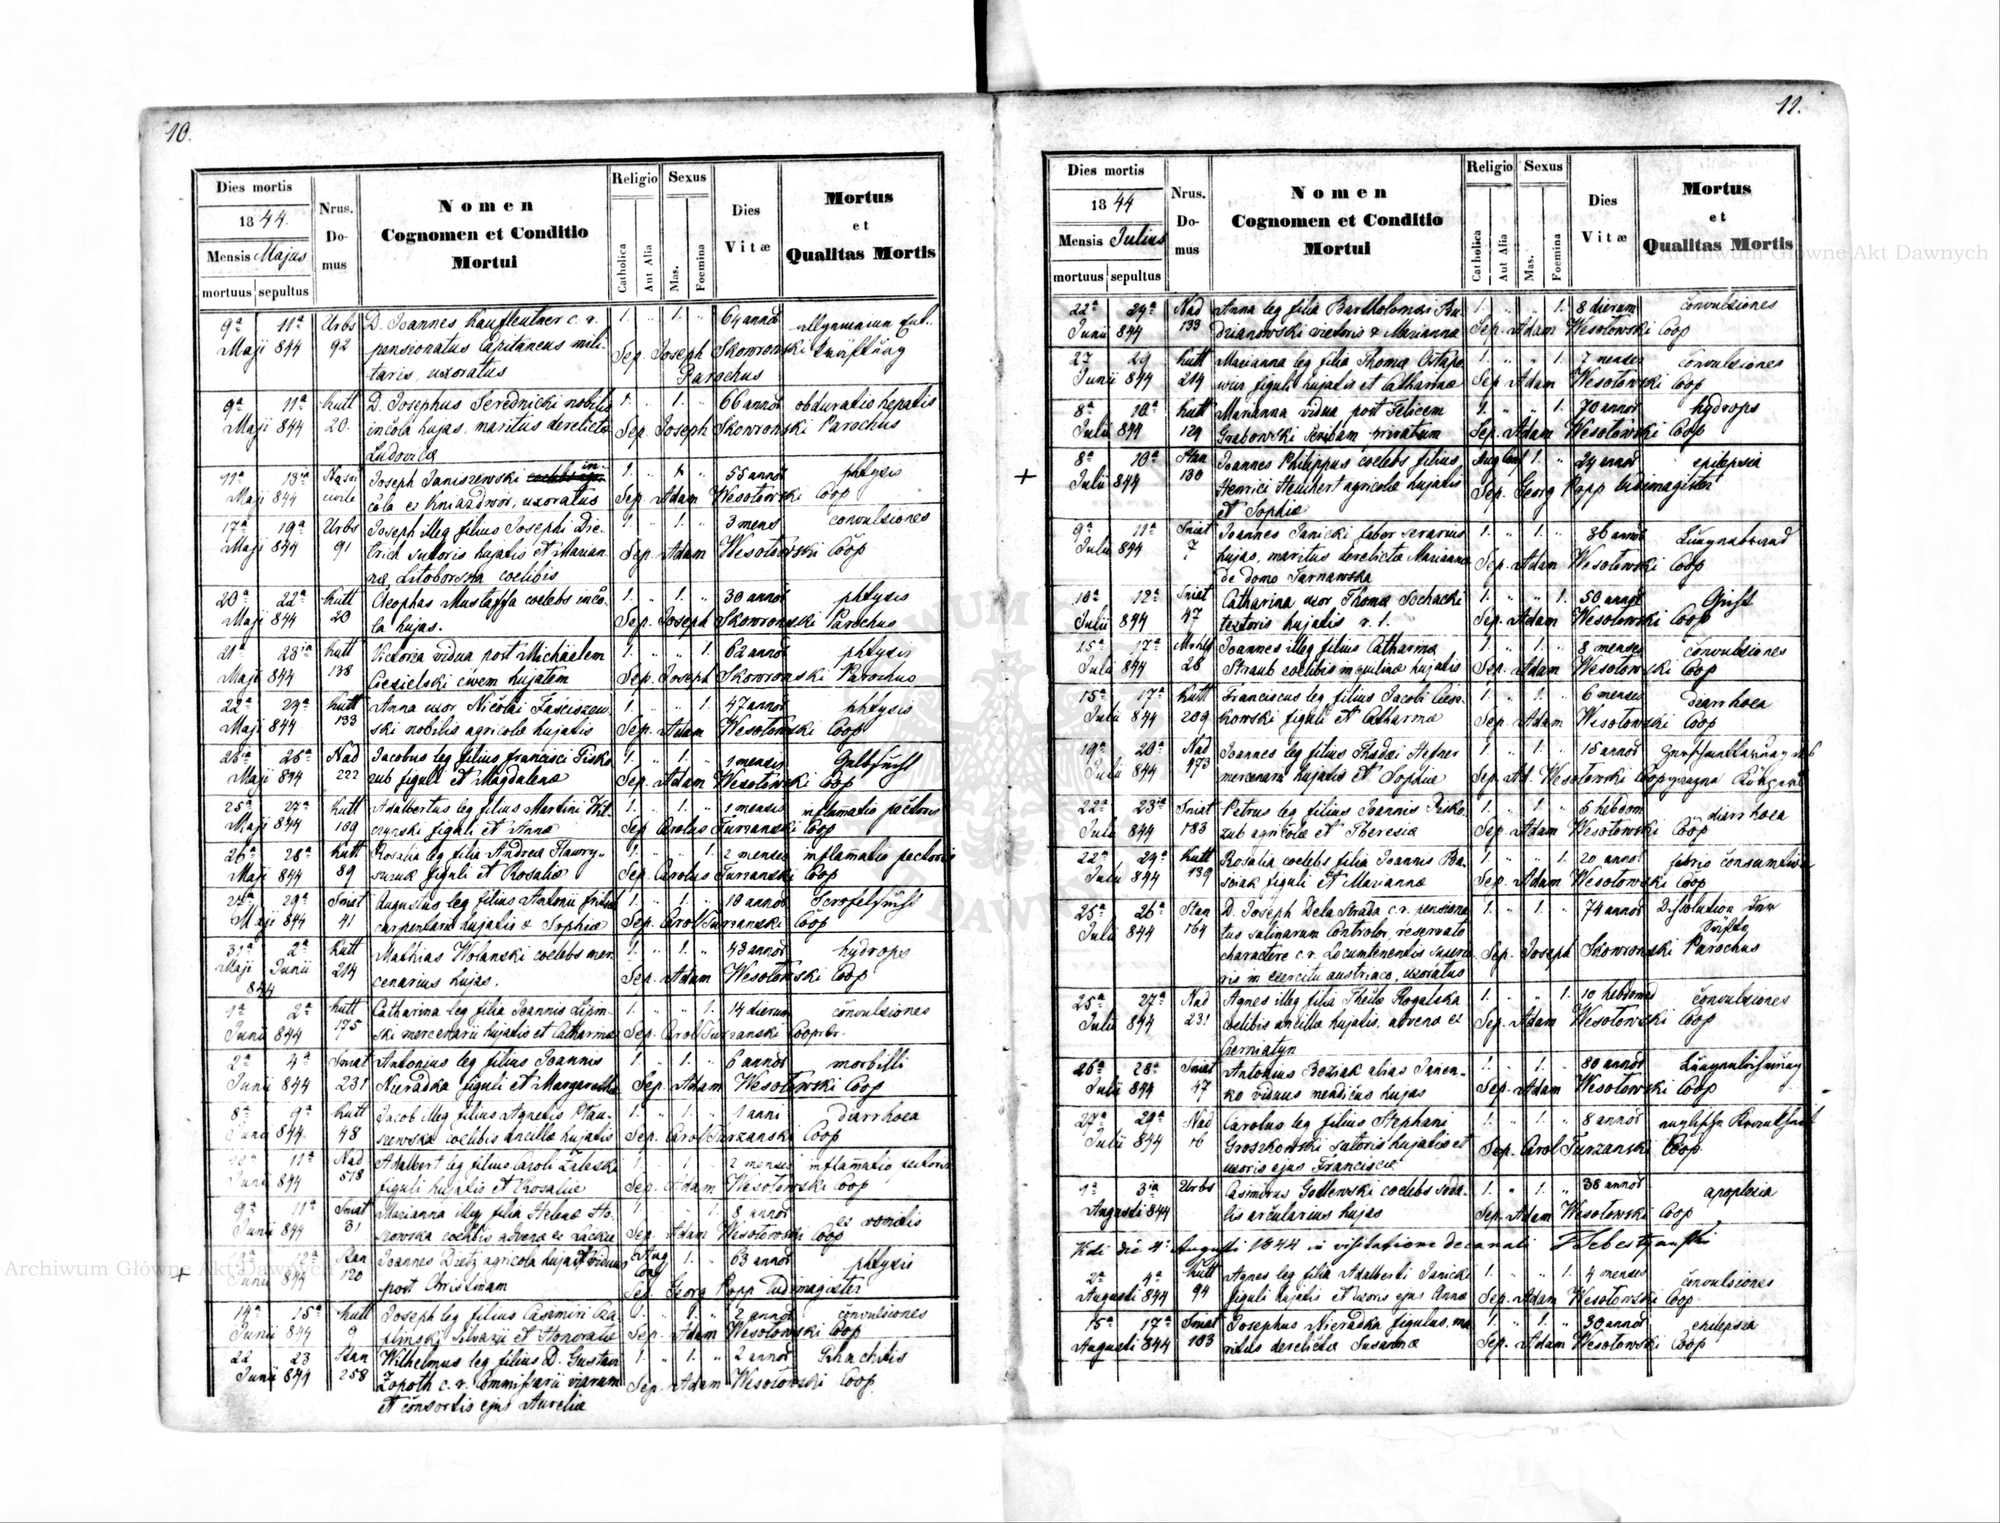 10.
Dies mortis
1844.
Mensis Majus
mortuus sepultus
Nrus. Domus
Nomen
Cognomen et Conditio
Mortui
Religio
Catholica
Aut Alia
Sexus
Mas.
Foemina
Dies
Vitæ
Mortus
et
Qualitas Mortis
9ª 11ª Urbs D. Joannes Kaufleutner c. r. 1. 1. 64 annor
Maji 844 92 pensionatus Capitaneus mili- Sep. Joseph Skowronski
taris, uxoratus Parochus
9ª 11ª Kutt D. Josephus Serednicki nobilis 1. 1. 66 annor obduratio hepatis
Maji 844 20. incola hujas, maritus derelictæ Sep. Joseph Skowronski Parochus
Ludovicæ
11ª 13ia Joseph Janiszewski in- 1. 1. 55 annor phtysis
Maji 844 cola ex Kniazdwor, uxoratus Sep. Adam Wesołowski Coop
17ª 19ª Urbs Joseph illeg filius Josephi Die- 1. 1. 3 mens convulsiones
Maji 844 91 trich sutoris hujatis et Marian- Sep. Adam Wesołowski Coop
næ Litoborska coelibis
20ª 22ª Kutt Cleophas Mustaffa coelebs inco- 1. 1. 30 annor phtysis
Maji 844 20 la hujas. Sep. Joseph Skowronski Parochus
21ª 23ia Kutt Victoria vidua post Michaelem 1. 1. 62 annor phtysis
Maji 844 138 Ciesielski civem hujatem Sep. Joseph Skowronski Parochus
22ª 24ª Kutt Anna uxor Nicolai Fasciszew- 1. 1. 47 annor phtysis
Maji 844 133 ski nobilis agricolæ hujatis Sep. Adam Wesołowski Coop
23ª 26ª Nad Jacobus leg filius Francisci Pisko 1. 1. 1 mensis Gelbsucht
Maji 844 222 zub figuli et Magdalenæ Sep. Adam Wesołowski Coop
25ª 27ª Kutt Adalbertus leg filius Martini 1. 1. 1 mensis inflamatio pectoris
Maji 844 109 czynski figuli et Annæ Sep Carolus Turzanski Coop
26ª 28ª Kutt Rosalia leg filia Andreæ Hawry- 1. 1. 2 menses inflamatio pectoris
Maji 844 89 szuk figuli et Rosaliæ Sep. Carolus Turzanski Coop
29ª Sniat Augustus leg filius Antonii 1. 1. 10 annor Scrofelsucht
Maji 844 41 carpentarii hujatis & Sophiæ Sep. Carol Turzanski Coop
31ª 2ª Kutt Mathias Wolanski coelebs mer- 1. 1. 43 annor hydrops
Maji Junii 214 cenarius hujas. Sep. Adam Wesołowski Coop
844
1ª 2ª Kutt Catharina leg filia Joannis 1. 1. 14 dierum convulsiones
Junii 844 175 ski mercenarii hujatis et Catharinæ Sep. Carol Turzanski Cooper.
2ª 4ª Sniat Antonius leg filius Joannis 1. 1. 6 annor morbilli
Junii 844 231 Nieradka figuli et Margarethæ Sep. Adam Wesołowski Coop
8ª 9ª Kutt Jacob illeg filius Agnetis 1. 1. 1 anni diarrhoea
Junii 844. 48 szewska coelibis ancillæ hujatis Sep. Carol Turzanski Coop
11ª Nad Adalbert leg filius Caroli Zaleski 1. 1. 2 menses inflamatio pectoris
Junii 844 578 figuli hujatis et Rosaliæ Sep. Adam Wesołowski Coop
9ª 11ª Sniat Marianna illeg filia Helenæ 1. 1. 8 annor
Junii 844 31 szowska coelibis advenæ ex Sep. Adam Wesołowski Coop
12ª Stan Joannes Dietz agricola hujas, viduus Aug Conf 1. 63 annor phtysis
Junii 844 120 post Christinam Sep. Georg Popp ludimagister
14ª 15ª Kutt Joseph leg filius Casimiri 1. 1. 2 annor convulsiones
Junii 844 9 flinski et Honoratæ Sep. Adam Wesołowski Coop
22 23 Stan Wilhelmus leg filius D. Gustavi 1. 1. 2 annor Rhachitis
Junii 844 258 Zopoth c. r. Commissarii viarum Sep. Adam Wesołowski Coop.
et consortis ejus Aureliæ
11.
Dies mortis
1844
Mensis Julius
mortuus sepultus
Nrus. Domus
Nomen
Cognomen et Conditio
Mortui
Religio
Catholica
Aut Alia
Sexus
Mas.
Foemina
Dies
Vitæ
Mortus
et
Qualitas Mortis
22ª 24ª Nad Anna leg filia Bartholomæi Bu 1. 1. 8 dierum convulsiones
Junii 844 133 dzianowski & Marianna Sep. Adam Wesołowski Coop
27 29 Kutt Marianna leg filia Thomæ Ostapo 1. 1. 7 menses convulsiones
Junii 844 214 wicz figuli hujatis et Catharinæ Sep. Adam Wesołowski Coop
8ª 10ª Kutt Marianna vidua post Felicem 1. 1. 70 annor hydrops
Julii 844 129 Grabowski scribam privatum Sep. Adam Wesołowski Coop
8ª 10ª Stan Joannes Philippus coelebs filius Aug Conf 1. 24 annor epilepsia
Julii 844 130 Henrici agricolæ hujatis Sep. Georg Popp ludimagister
et Sophiæ
9ª 11ª Sniat Joannes Janicki faber serarius 1. 1. 36 annor Lungenbrand
Julii 844 7 hujas, maritus derelictæ Mariannæ Sep. Adam Wesołowski Coop
de domo Tarnawska
10ª 12ª Sniat Catharina uxor Thomæ Sochacki 1. 1. 50 annor Gicht
Julii 844 47 textoris hujatis r. l. Sep. Adam Wesołowski Coop
15ª 17ª Joannes illeg filius Catharinæ 1. 1. 8 menses convulsiones
Julii 844 28 Straub coelibis inquilinæ hujatis Sep. Adam Wesołowski Coop
15ª 17ª Kutt Franciscus leg filius Jacobi 1. 1. 6 menses diarrhoea
Julii 844 209 kowski figuli et Catharinæ Sep. Adam Wesołowski Coop
19ª 20ª Nad Joannes leg filius Thadæi Hefner 1. 1. 15 annor
Julii 844 173 mercenarii hujatis et Sophiæ Sep. Ad. Wesołowski Coop
22ª 23ia Sniat Petrus leg filius Joannis Pisko 1. 1. 5 hebdom diarrhoea
Julii 844 183 zub agricolæ et Theresiæ Sep. Adam Wesołowski Coop
22ª 24ª Kutt Rosalia coelebs filia Joannis Ba 1. 1. 20 annor febris consumtiva
Julii 844 139 figuli et Mariannæ Sep. Adam Wesołowski Coop
25ª 26ª Stan D. Joseph Dela Strada c. r. pensiona 1. 1. 74 annor
Julii 844 164 tus salinarum Controlor, reservato
charactere c. r. Locumtenentis Sep. Joseph Skowronski Parochus
ris in exercitu austriaco, uxoratus
25ª 27ª Nad Agnes illeg filia Theclæ Rogalska 1. 1. 10 hebdomad convulsiones
Julii 844 231 coelibis ancillæ hujatis, advenæ ex Sep. Adam Wesołowski Coop
Czerniatyn
26ª 28ª Sniat Antonius Boziak alias Janen- 1. 1. 80 annor
Julii 844 47 ko viduus mendicus hujas Sep. Adam Wesołowski Coop
27ª 29ª Nad Carolus leg filius Stephani 1. 1. 8 annor englische Krankheit
Julii 844 16 Groszkowski sutoris hujatis et Sep. Carol Turzanski Coop
uxoris ejus Franciscæ
1ª 3ia Urbs Casimirus Godlewski coelebs soda- 1. 1. 38 annor apoplexia
Augusti 844 lis arcularius hujas Sep. Adam Wesołowski Coop
Vidi die 4ª Augusti 1844 in visitatione decanali
2ª 4ª Kutt Agnes leg filia Adalberti Janicki 1. 1. 4 menses convulsiones
Augusti 844 94 figuli hujatis et uxoris ejus Annæ Sep. Adam Wesołowski Coop
15ª 17ª Sniat Josephus Nieradka figulus, ma 1. 1. 30 annor epilepsia
Augusti 844 103 ritus derelictæ Susannæ Sep. Adam Wesołowski Coop
Archiwum Główne Akt Dawnych
Archiwum Główne Akt Dawnych